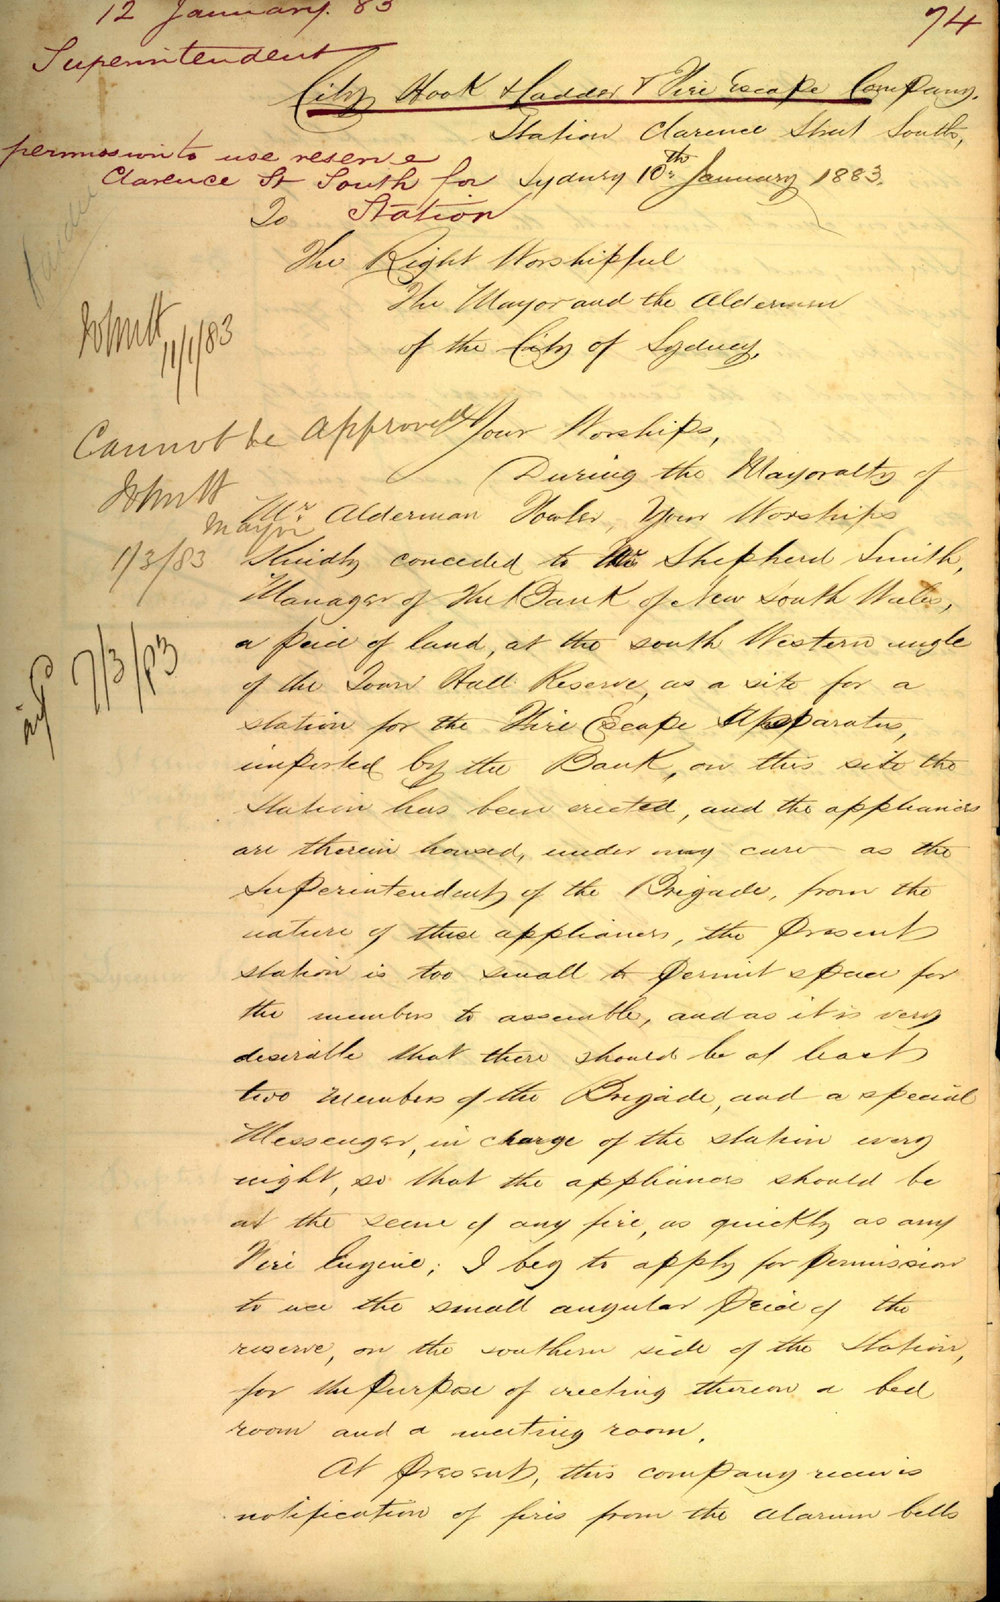 12 January. 83
74
Superintendent
City Hook & Ladder & Fire Escape Company.
Station Clarence Street South,
permission to use reserve
Clarence St South for
Station
Sydney 10th January 1883.
To
The Right Worshipful
The Mayor and the Aldermen
of the City of Sydney,
11/1/83
Cannot be approved
Mayor
1/3/83
7/3/83
Your Worships,
During the Mayoralty of
Mr. Alderman Fowler, Your Worships
Kindly conceded to Mr Shepherd Smith,
Manager of the Bank of New South Wales,
a peice of land, at the south Western angle
of the Town Hall Reserve, as a site for a
station for the Fire Escape Apparatus,
imported by the Bank, on this site the
Station has been erected, and the appliances
are therein housed, under my care as the
Superintendent of the Brigade, from the
nature of these appliances, the present
station is too small to permit space for
the members to assemble, and as it is very
desirable that there should be at least
two members of the Brigade, and a special
Messenger, in charge of the station every
night, so that the appliances should be
at the scene of any fire, as quickly as any
Fire Engine; I beg to apply for permission
to use the small angular peice of the
reserve, on the southern side of the Station,
for the purpose of erecting thereon a bed
room and a meeting room.
At present, this company receives
notification of fires from the alarum bells